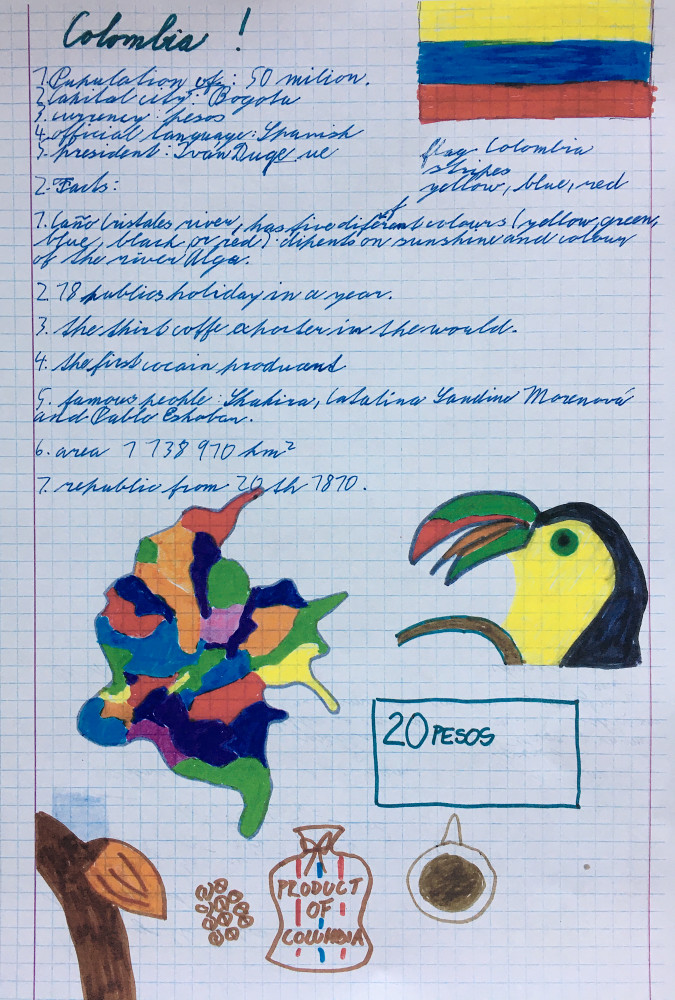 Colombia !
1. Population of : 50 milion.
2. capital city : Bogota
3. currency : pesos
4. official language : Spanish
5. president : Iván Duqe ue
flag Colombia
stripes
yellow, blue, red
2. Facts:
1. Caño Cristales river, has five diferent colours (yellow, green,
blue, black or red) dipents on sunshine and colour
of the river Alga.
2. 18 publics holiday in a year.
3. the thirt coffe exporter in the would.
4. the first cocain producent
5. famous people : Shakira, Catalina Sandino Morenová
and Pablo Eskobar.
6. area 1 138 910 km²
7. republic from 20 th 1810.
20 PESOS
PRODUCT
OF
COLUMBIA